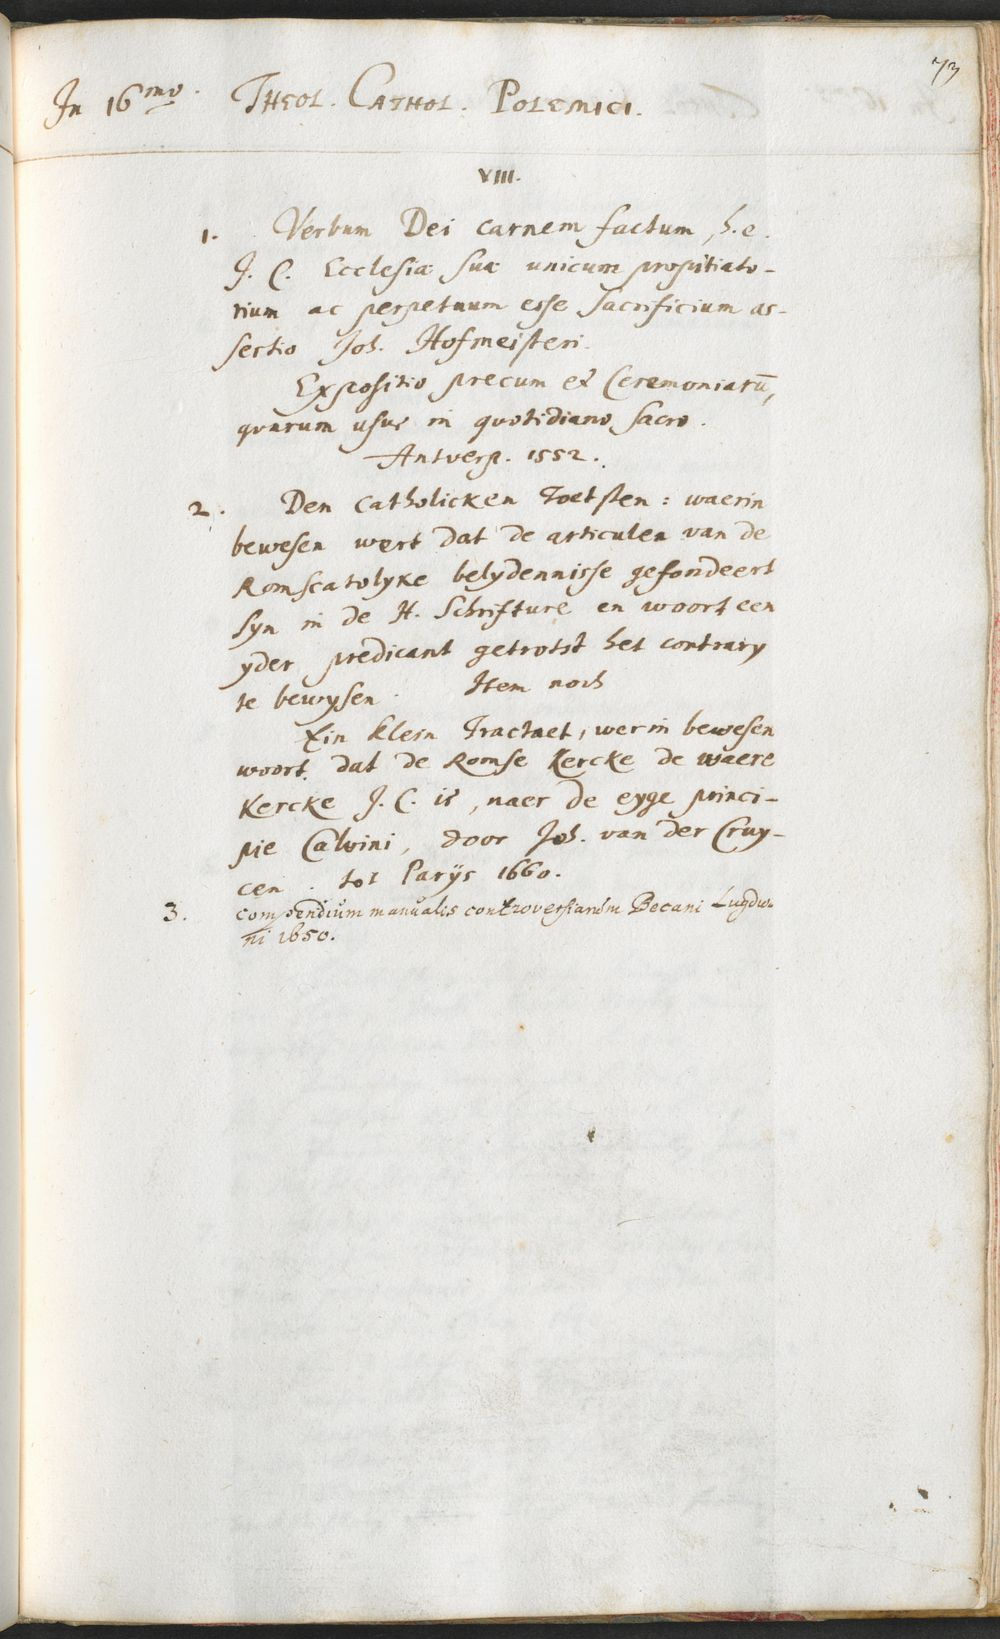 73
In 16mo. Theol. Cathol. Polemici.
VIII.
1. Verbum Dei carnem factum, h.e.
J. C. Ecclesiæ suæ unicum propitiato-
rium ac perpetuum esse sacrificium as-
sertio Joh. Hofmeisteri.
Expositio precum et Ceremoniarū,
quarum usus in quotidiano sacro.
Antverp. 1552.
2. Den Catholicken Toetsten: waerin
bewesen wert dat de articulen van de
Romscatolyke belydennisse gefondeert
syn in de H. Schrifture en woort een
yder predicant getrotst het contrary
te bewysen. Item noch
Ein klein Tractaet, werin bewesen
woort. dat de Romse Kercke de waere
Kercke J. C. is, naer de eyge princi-
pie Calvini, door Joh. van der Cruy-
cen. tot Parÿs 1660.
3. compendium manualis controversiarum Becani Lugdu-
ni 1650.